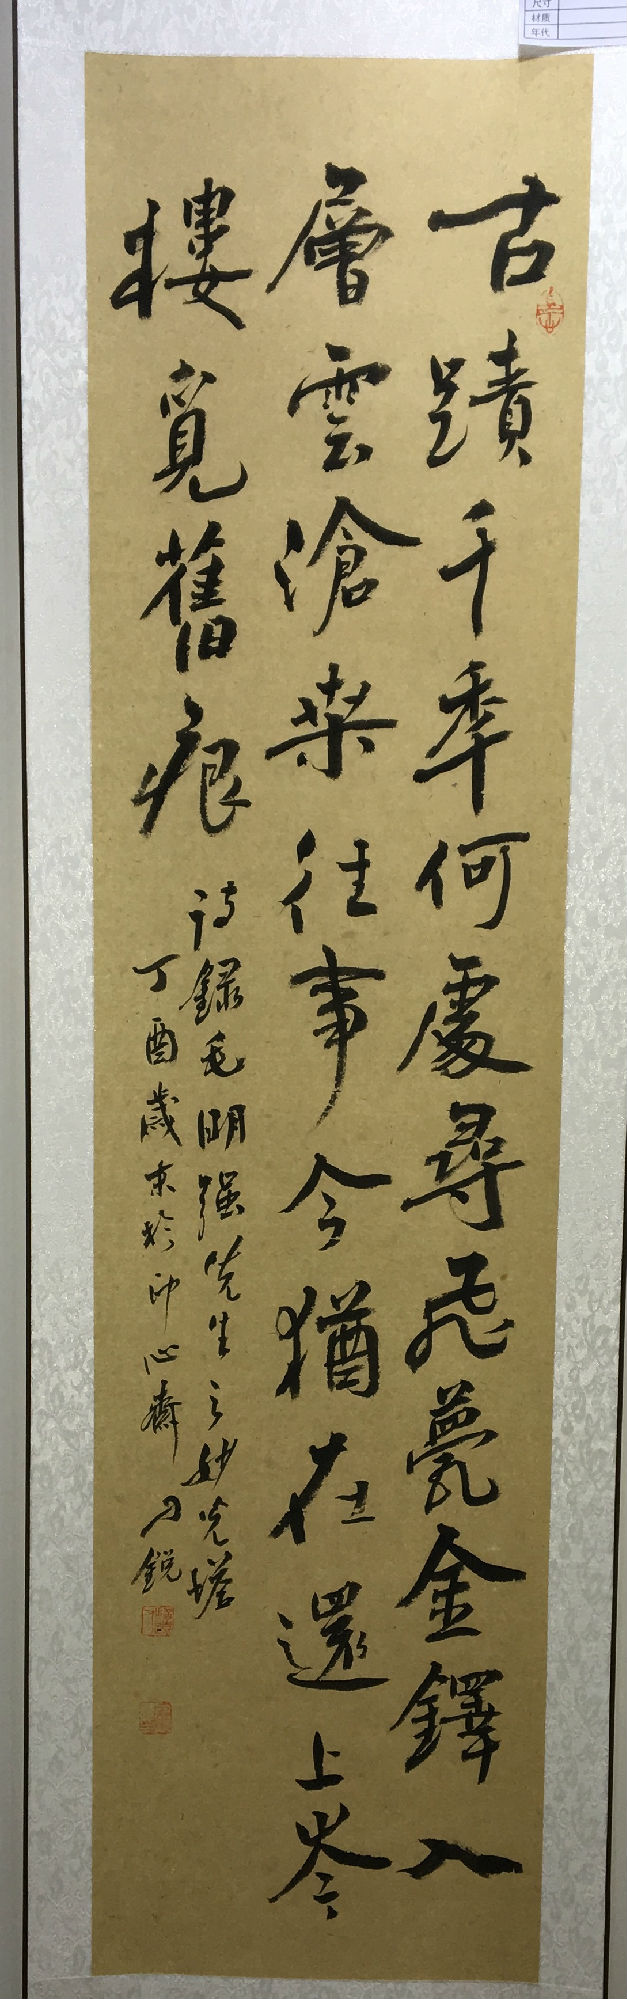 古蹟千年何處尋飛甍金鐸入
層雲滄桑往事今猶在還上岑
樓覓舊痕
詩錄毛明強先生之妙光塔
丁酉歲末於印心齋刀銳
尺寸
材质
年代